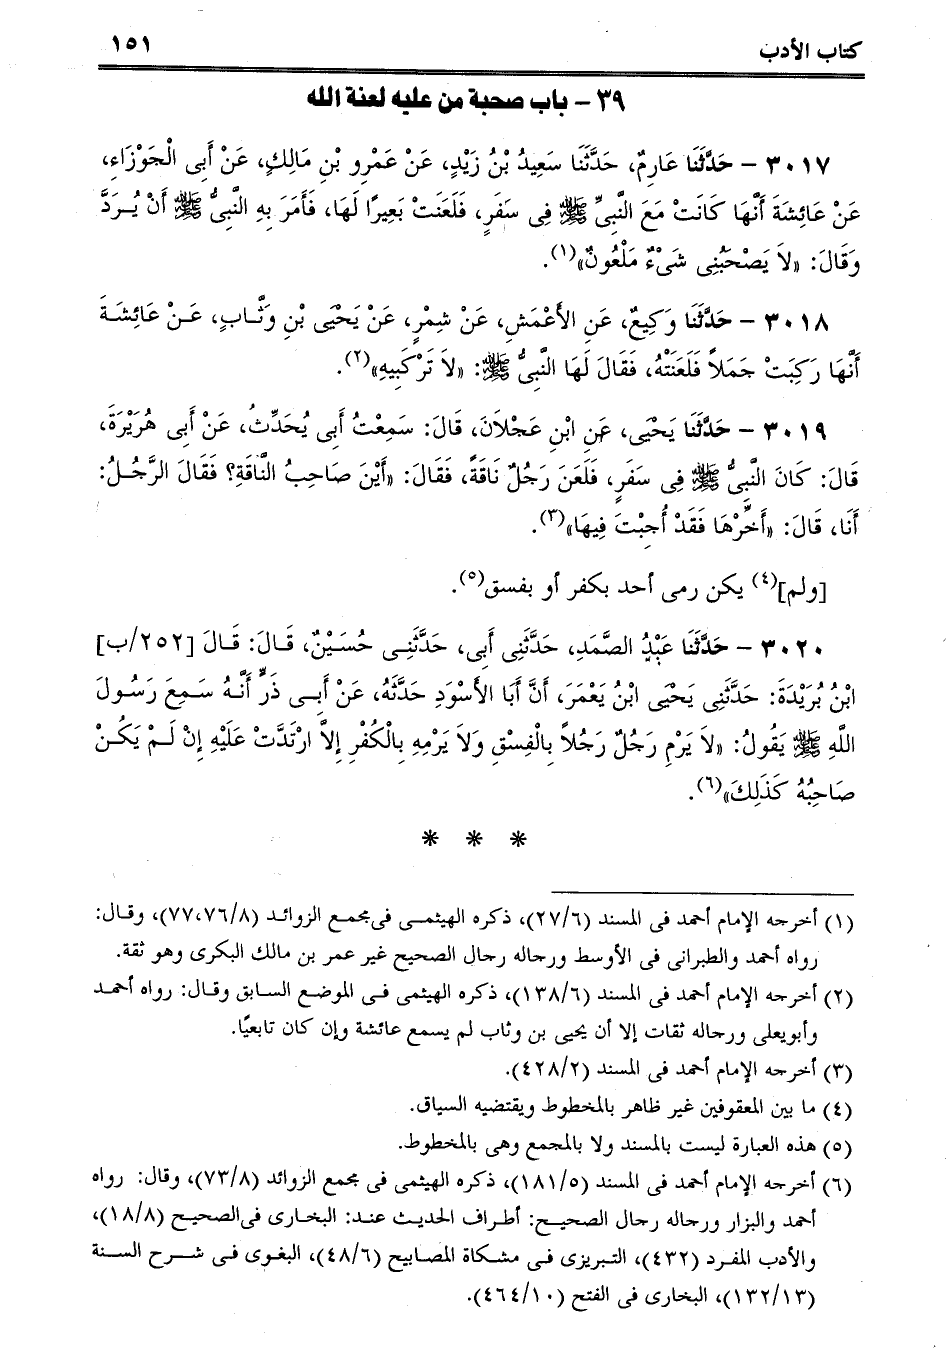 كتاب الأدب ١٥١
٣٩ - باب صحبة من عليه لعنة الله
٣٠١٧ - حَدَّثَنَا عَارِمٌ، حَدَّثَنَا سَعِيدُ بْنُ زَيْدٍ، عَنْ عَمْرِو بْنِ مَالِكٍ، عَنْ أَبِى الْجَوْزَاءِ،
عَنْ عَائِشَةَ أَنَّهَا كَانَتْ مَعَ النَّبِىِّ ﷺ فِى سَفَرٍ، فَلَعَنَتْ بَعِيرًا لَهَا، فَأَمَرَ بِهِ النَّبِىُّ ﷺ أَنْ يُرَدَّ
وَقَالَ: «لاَ يَصْحَبُنِى شَىْءٌ مَلْعُونٌ»(١).
٣٠١٨ - حَدَّثَنَا وَكِيعٌ، عَنِ الأَعْمَشِ، عَنْ شِمْرٍ، عَنْ يَحْيَى بْنِ وَثَّابٍ، عَنْ عَائِشَةَ
أَنَّهَا رَكِبَتْ جَمَلاً فَلَعَنَتْهُ، فَقَالَ لَهَا النَّبِىُّ ﷺ: «لاَ تَرْكَبِيهِ»(٢).
٣٠١٩ - حَدَّثَنَا يَحْيَى، عَنِ ابْنِ عَجْلاَنَ، قَالَ: سَمِعْتُ أَبِى يُحَدِّثُ، عَنْ أَبِى هُرَيْرَةَ،
قَالَ: كَانَ النَّبِىُّ ﷺ فِى سَفَرٍ، فَلَعَنَ رَجُلٌ نَاقَةً، فَقَالَ: «أَيْنَ صَاحِبُ النَّاقَةِ؟ فَقَالَ الرَّجُلُ:
أَنَا، قَالَ: «أَخِّرْهَا فَقَدْ أُجِبْتَ فِيهَا»(٣).
[ولم](٤) يكن رمى أحد بكفر أو بفسق(٥).
٣٠٢٠ - حَدَّثَنَا عَبْدُ الصَّمَدِ، حَدَّثَنِى أَبِى، حَدَّثَنِى حُسَيْنٌ، قَالَ: قَالَ [٢٥٢/ب]
ابْنُ بُرَيْدَةَ: حَدَّثَنِى يَحْيَى ابْنُ يَعْمَرَ، أَنَّ أَبَا الأَسْوَدِ حَدَّثَهُ، عَنْ أَبِى ذَرٍّ أَنَّهُ سَمِعَ رَسُولَ
اللَّهِ ﷺ يَقُولُ: «لاَ يَرْمِ رَجُلٌ رَجُلاً بِالْفِسْقِ وَلاَ يَرْمِهِ بِالْكُفْرِ إِلاَّ ارْتَدَّتْ عَلَيْهِ إِنْ لَمْ يَكُنْ
صَاحِبُهُ كَذَلِكَ»(٦).
* * *
(١) أخرجه الإمام أحمد فى المسند (٢٧/٦)، ذكره الهيثمى فى مجمع الزوائد (٧٧،٧٦/٨)، وقال:
رواه أحمد والطبرانى فى الأوسط ورحاله رحال الصحيح غير عمر بن مالك البكرى وهو ثقة.
(٢) أخرجه الإمام أحمد فى المسند (١٣٨/٦)، ذكره الهيثمى فى الموضع السابق وقال: رواه أحمد
وأبويعلى ورحاله ثقات إلا أن يحيى بن وثاب لم يسمع عائشة وإن كان تابعيًا.
(٣) أخرجه الإمام أحمد فى المسند (٤٢٨/٢).
(٤) ما بين المعقوفين غير ظاهر بالمخطوط ويقتضيه السياق.
(٥) هذه العبارة ليست بالمسند ولا بالمجمع وهى بالمخطوط.
(٦) أخرجه الإمام أحمد فى المسند (١٨١/٥)، ذكره الهيثمى فى مجمع الزوائد (٧٣/٨)، وقال: رواه
أحمد والبزار ورحاله رجال الصحيح: أطراف الحديث عند: البخارى فى الصحيح (١٨/٨)،
والأدب المفرد (٤٣٢)، التبريزى فى مشكاة المصابيح (٤٨/٦)، البغوى فى شرح السنة
(١٣٢/١٣)، البخارى فى الفتح (٤٦٤/١٠).